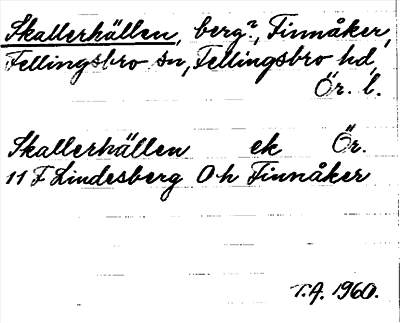 Skallerhällen, berg?, Finnåker,
Fellingsbro sn, Fellingsbro hd,
Ör. l.
Skallerhällen ek Ör.
11 F Lindesberg 0 h Finnåker
T.A. 1960.